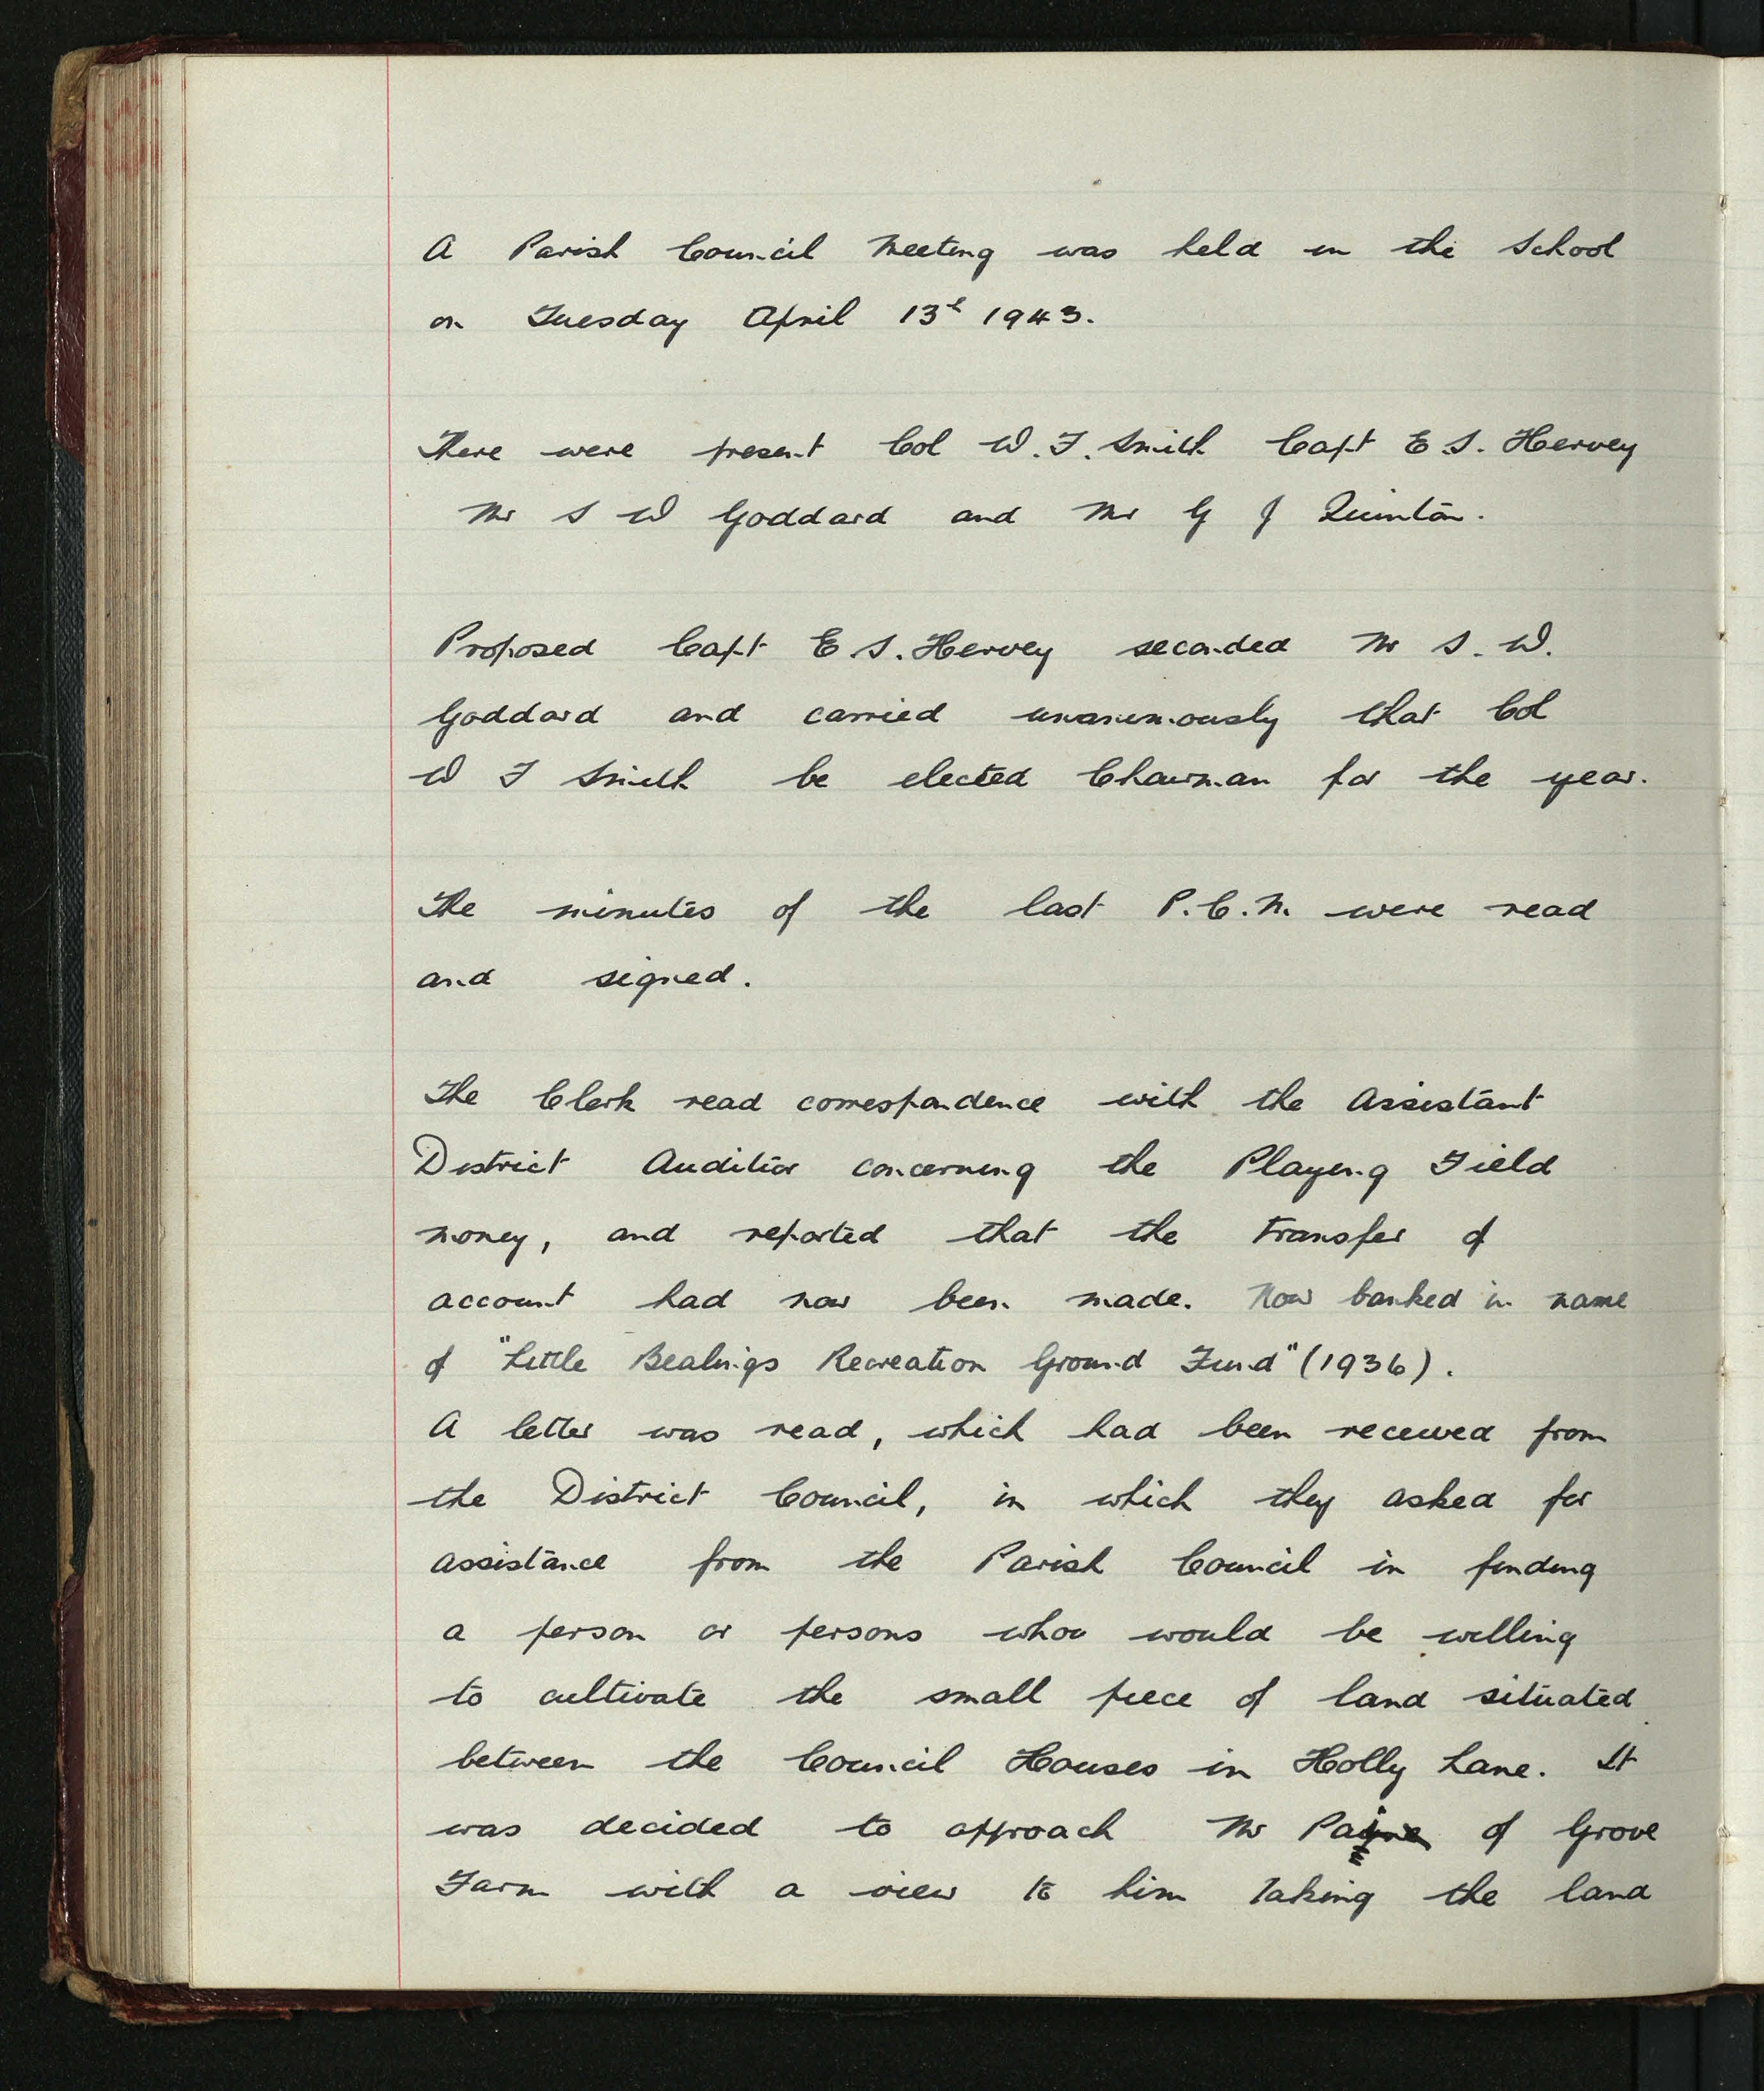 A Parish Council Meeting was held in the School
on Tuesday April 13th 1943.
There were present Col W.F. Smith Capt E S. Hervey
Mr S W Goddard and Mr G J Quinton.
Proposed Capt E S. Hervey seconded Mr S. W.
Goddard and carried unanimously that Col
W F Smith be elected Chairman for the year.
The minutes of the last P.C.M. were read
and signed.
The Clerk read correspondence with the Assistant
District Auditor concerning the Playing Field
money, and reported that the transfer of
account had now been made. Now banked in name
of "Little Bealings Recreation Ground Fund" (1936).
A letter was read, which had been received from
the District Council, in which they asked for
assistance from the Parish Council in finding
a person or persons who would be willing
to cultivate the small piece of land situated
between the Council Houses in Holly Lane. It
was decided to approach Mr of Grove
Farm with a view to him taking the land